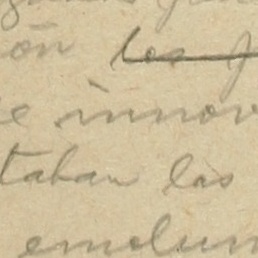 ón los
e innov
taban las
emolum